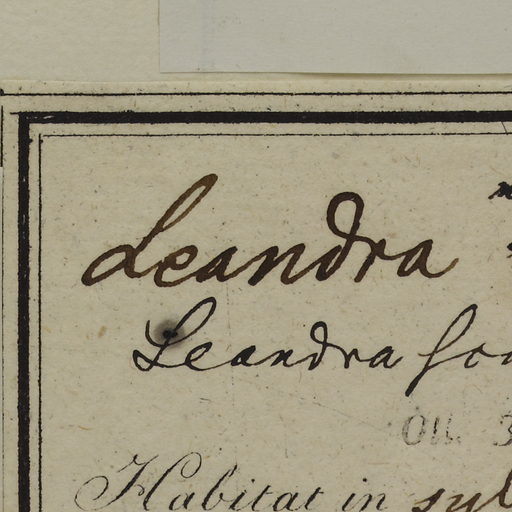 Leandra
Leandra
Oll. 3
Habitat in syl